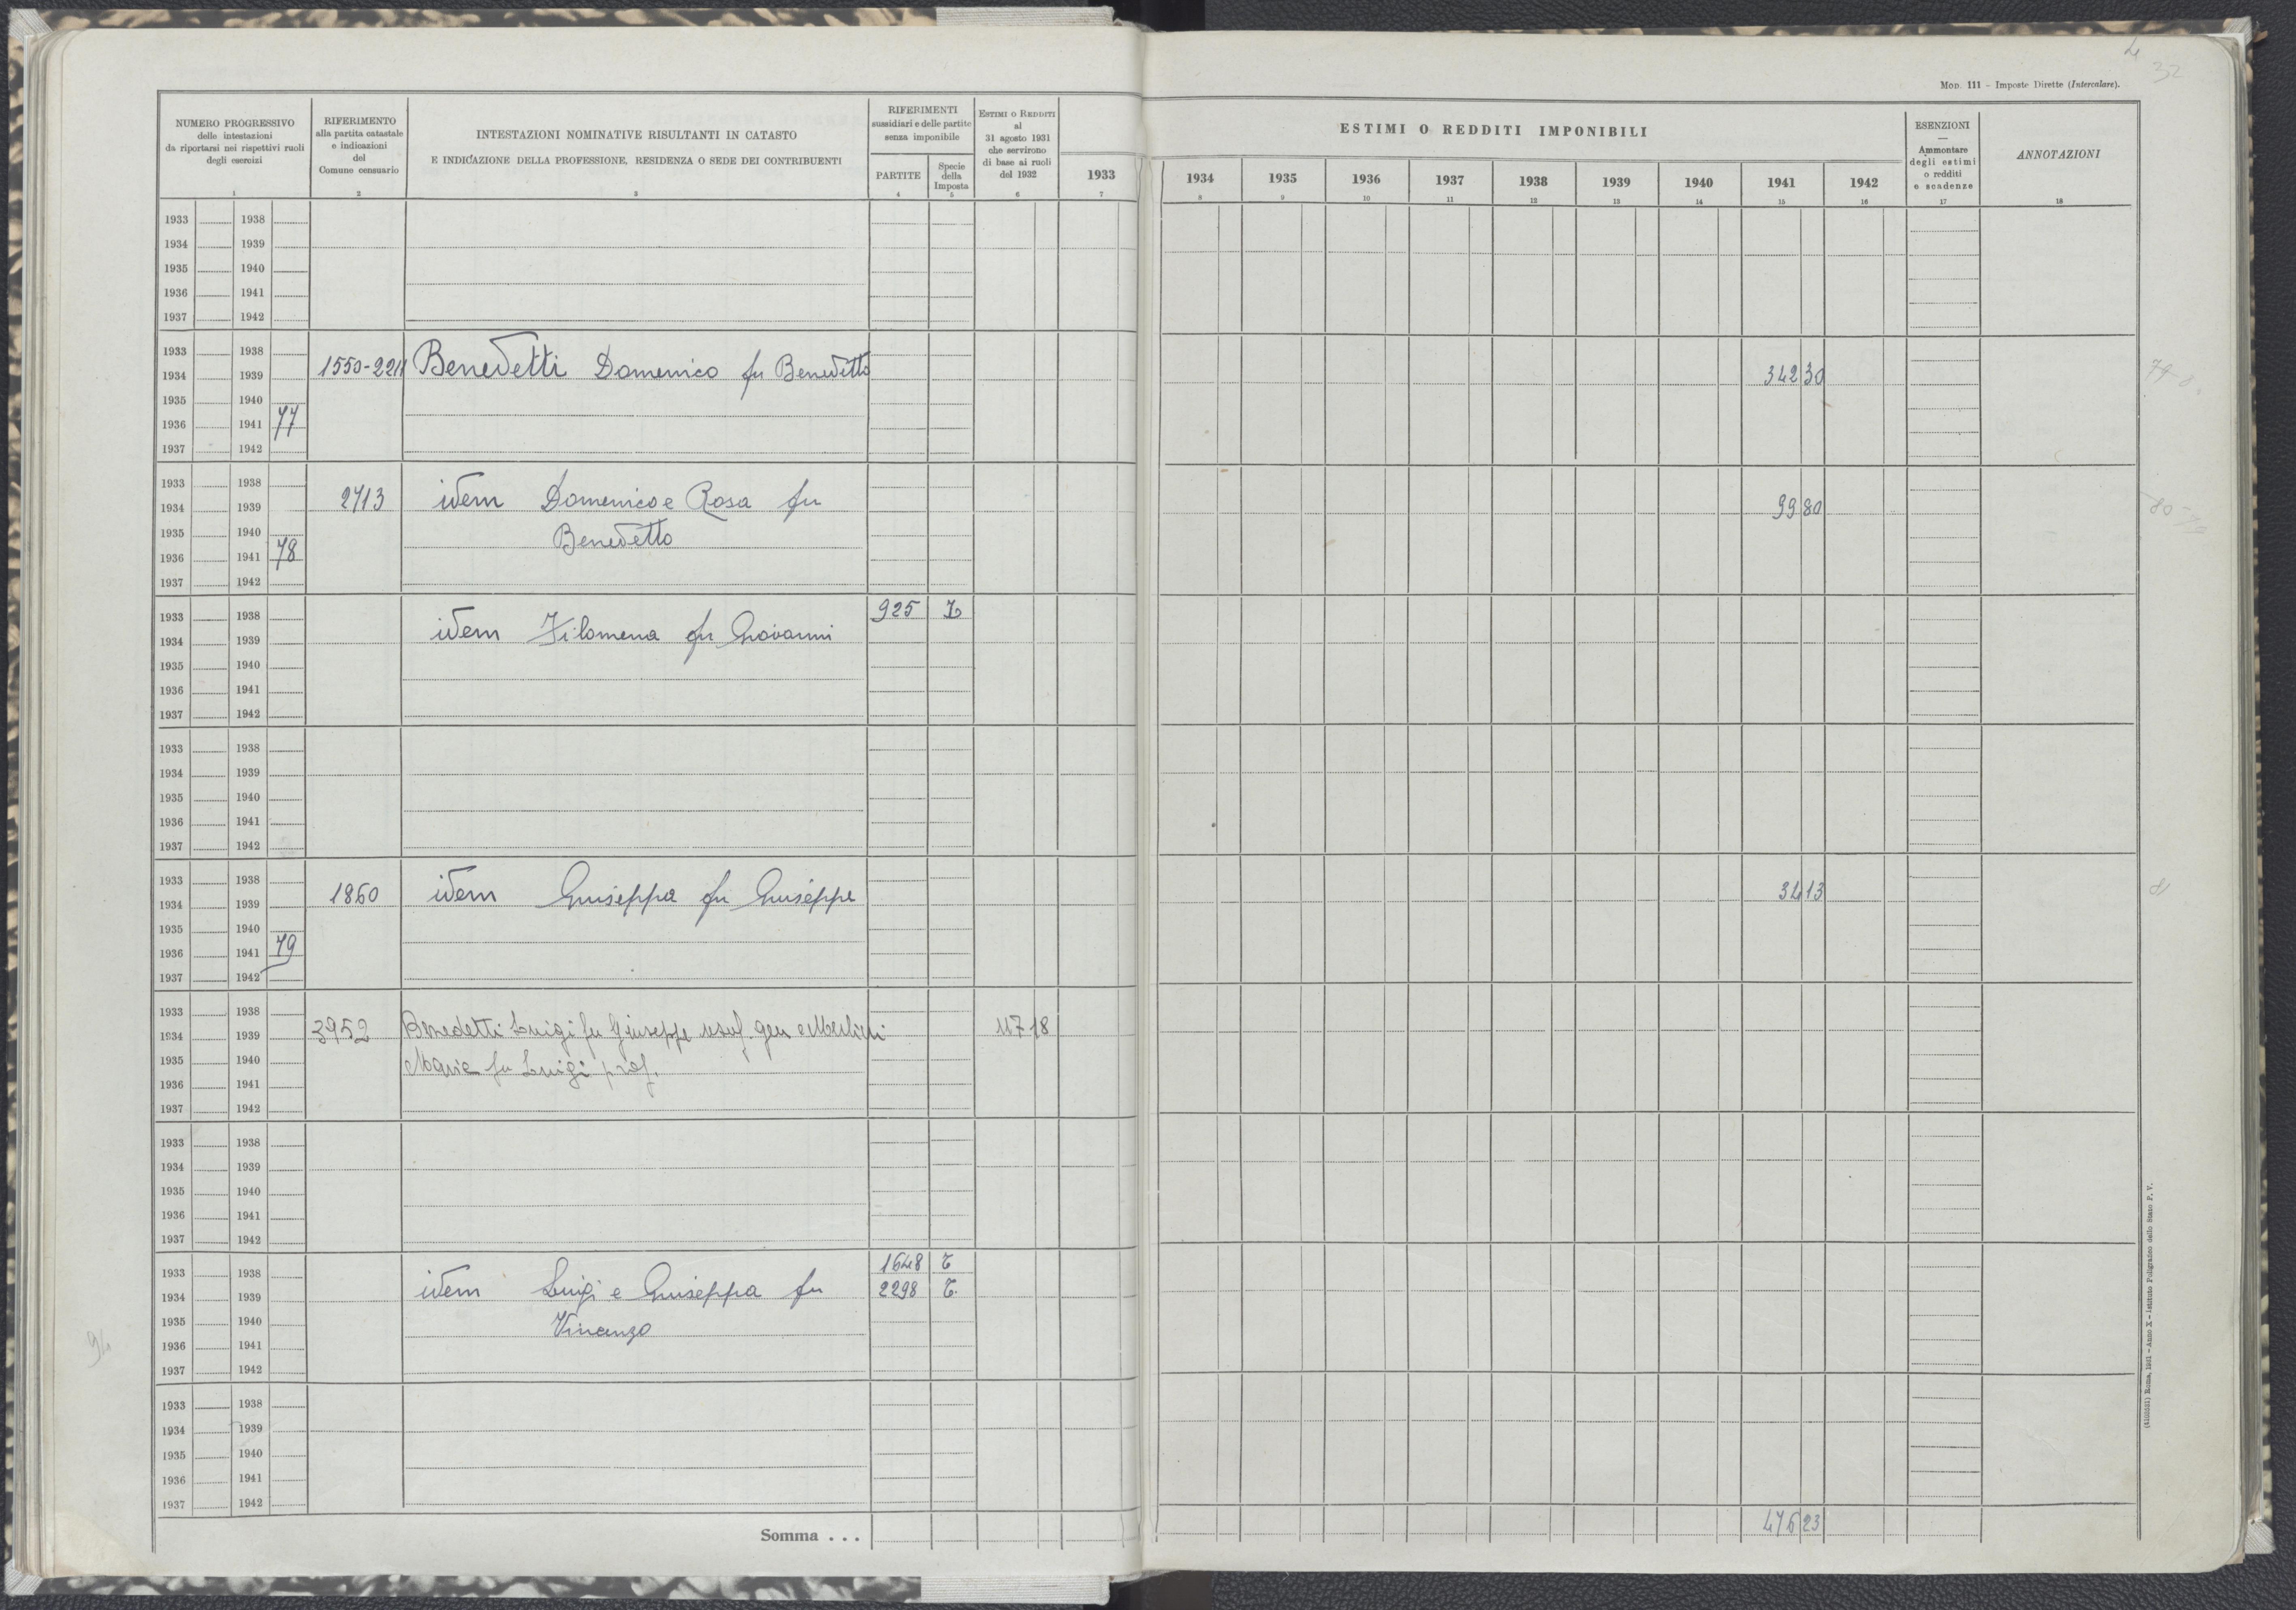 32
MOD. 111 – Imposte Dirette (Intercalare).
NUMERO PROGRESSIVO
delle intestazioni
da riportarsi nei rispettivi ruoli
degli esercizi
1
RIFERIMENTO
alla partita catastale
e indicazioni
del
Comune censuario
2
INTESTAZIONI NOMINATIVE RISULTANTI IN CATASTO
E INDICAZIONE DELLA PROFESSIONE, RESIDENZA O SEDE DEI CONTRIBUENTI
3
RIFERIMENTI
sussidiari e delle partite
senza imponibile
PARTITE
4
Specie
della
Imposta
5
ESTIMI O REDDITI
al
31 agosto 1931
che servirono
di base ai ruoli
del 1932
6
ESTIMI O REDDITI IMPONIBILI
1933
7
1934
8
1935
9
1936
10
1937
11
1938
12
1939
13
1940
14
1941
15
1942
16
ESENZIONI
—
Ammontare
degli estimi
o redditi
e scadenze
17
ANNOTAZIONI
18
1933 1938
1934 1939
1935 1940
1936 1941
1937 1942
1933 1938
1934 1939 1550-2211 Benedetti Domenico fu Benedetto 342 30
1935 1940
1936 1941 77
1937 1942
1933 1938
1934 1939 2713 idem Domenico e Rosa fu 99 80
1935 1940 Benedetto
1936 1941 78
1937 1942
1933 1938 925
1934 1939 idem Filomena fu Giovanni
1935 1940
1936 1941
1937 1942
1933 1938
1934 1939
1935 1940
1936 1941
1937 1942
1933 1938
1934 1939 1860 idem Giuseppa fu Giuseppe 34 13
1935 1940
1936 1941 79
1937 1942
1933 1938
1934 1939 3952 Benedetti Luigi fu Giuseppe usuf. gen e Merlini 117 18
1935 1940 Maria fu Luigi prop.
1936 1941
1937 1942
1933 1938
1934 1939
1935 1940
1936 1941
1937 1942
1933 1938 1648 T
1934 1939 idem Luigi e Giuseppa fu 2298 T.
1935 1940 Vincenzo
1936 1941
1937 1942
1933 1938
1934 1939
1935 1940
1936 1941
1937 1942
Somma . . . 476 23
94
81
(4103031) Roma, 1931 – Anno X – Istituto Poligrafico dello Stato P. V.